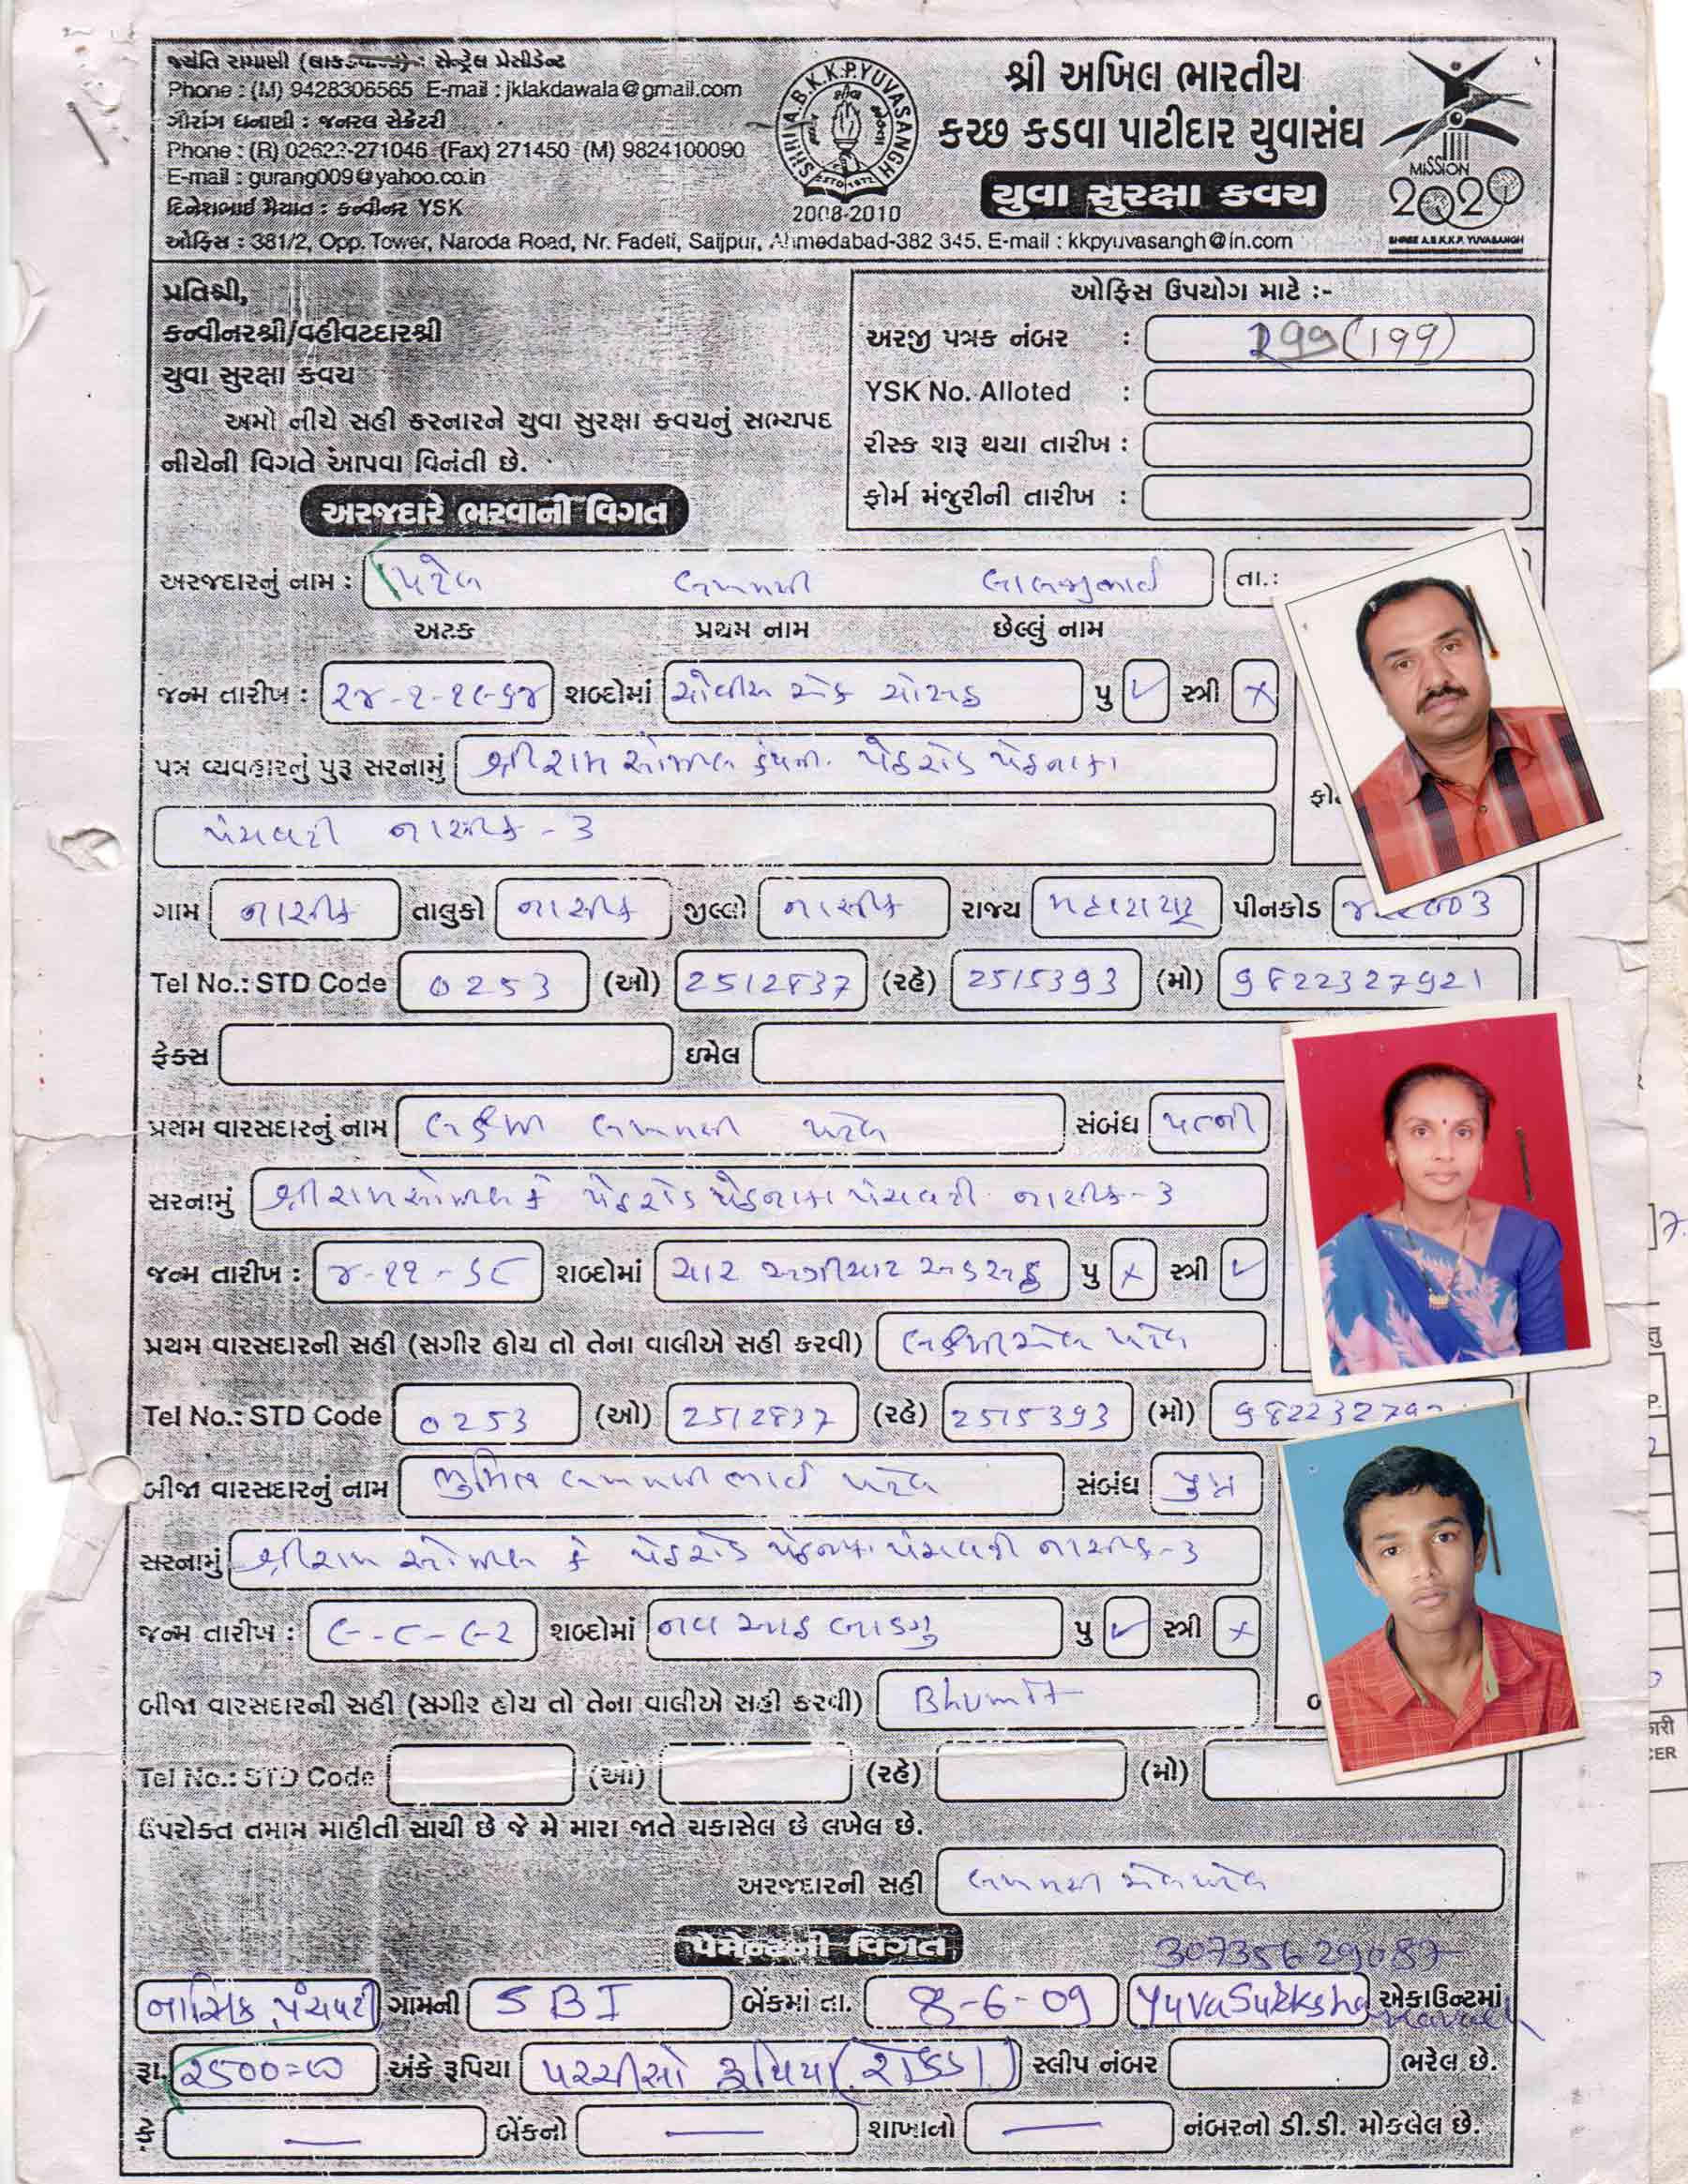 જ્યંતિ રામાણી : સેન્ટ્રેલ પ્રેસીડેન્ટ
Phone : (M) 9428306565 E-mail : jklakdawala@gmail.com
ગૌરાંગ ધનાણી : જનરલ સેક્રેટરી
Phone : (R) 02622-271046 (Fax) 271450 (M) 9824100090
E-mail : gurang009@yahoo.co.in
દિનેશભાઈ મૈયાત : કન્વીનર YSK
SHRI A.B.K.K.P. YUVASANGH
ESTD 1972
2008-2010
શ્રી અખિલ ભારતીય
કચ્છ કડવા પાટીદાર યુવાસંઘ
યુવા સુરક્ષા કવચ
MISSION
2020
SHREE A.B.K.K.P. YUVASANGH
ઓફિસ : 381/2, Opp. Tower, Naroda Road, Nr. Fadeli, Saijpur, Ahmedabad-382 345. E-mail : kkpyuvasangh@in.com
પ્રતિશ્રી,
કન્વીનરશ્રી/વહીવટદારશ્રી
યુવા સુરક્ષા કવચ
અમો નીચે સહી કરનારને યુવા સુરક્ષા કવચનું સભ્યપદ
નીચેની વિગતે આપવા વિનંતી છે.
અરજદારે ભરવાની વિગત
ઓફિસ ઉપયોગ માટે :-
અરજી પત્રક નંબર : 299 (199)
YSK No. Alloted :
રીસ્ક શરૂ થયા તારીખ :
ફોર્મ મંજુરીની તારીખ :
અરજદારનું નામ : પટેલ લખમશી લાલજીભાઈ તા.:
અટક પ્રથમ નામ છેલ્લું નામ
જન્મ તારીખ : ૨૪-૧-૧૯૬૪ શબ્દોમાં ચોવીસ એક ચોસઠ પુ ✓ સ્ત્રી ×
પત્ર વ્યવહારનું પુરૂ સરનામું શ્રીરામ સોમિલ કંપની. પેઠરોડ પેઠનાકા
પંચવટી નાસીક - ૩
ગામ નાસીક તાલુકો નાસીક જીલ્લો નાસીક રાજ્ય મહારાષ્ટ્ર પીનકોડ
Tel No.: STD Code 0253 (ઓ) 2512837 (રહે) 2515393 (મો) 9822327921
ફેક્સ ઇમેલ
પ્રથમ વારસદારનું નામ લક્ષ્મી લખમશી પટેલ સંબંધ પત્ની
સરનામું શ્રીરામ સોમિલ કં પેઠરોડ પેઠનાકા પંચવટી નાસીક-૩
જન્મ તારીખ : ૪-૧૧-૬૮ શબ્દોમાં ચાર અગીયાર અડસઠ પુ × સ્ત્રી ✓
પ્રથમ વારસદારની સહી (સગીર હોય તો તેના વાલીએ સહી કરવી) પટેલ
Tel No.: STD Code 0253 (ઓ) 2512837 (રહે) 2515393 (મો)
બીજા વારસદારનું નામ ભુમિત લખમશીભાઈ પટેલ સંબંધ પુત્ર
સરનામું શ્રીરામ સોમિલ કં પેઠરોડ પેઠનાકા પંચવટી નાસીક-૩
જન્મ તારીખ : ૯-૮-૯૨ શબ્દોમાં નવ આઠ બાણુ પુ ✓ સ્ત્રી ×
બીજા વારસદારની સહી (સગીર હોય તો તેના વાલીએ સહી કરવી) Bhumit
Tel No.: STD Code (ઓ) (રહે) (મો)
ઉપરોક્ત તમામ માહીતી સાચી છે જે મે મારા જાતે ચકાસેલ છે લખેલ છે.
અરજદારની સહી
પેમેન્ટની વિગત
30735629087
નાસિક, પંચવટી ગામની SBI બેંકમાં તા. 8-6-09 Yuva Surksha Kavach એકાઉન્ટમાં
રૂા. ૨500=૦૦ અંકે રૂપિયા પચ્ચીસો રૂપિયા (રોકડા) સ્લીપ નંબર ભરેલ છે.
કે — બેંકનો — શાખાનો — નંબરનો ડી.ડી. મોકલેલ છે.